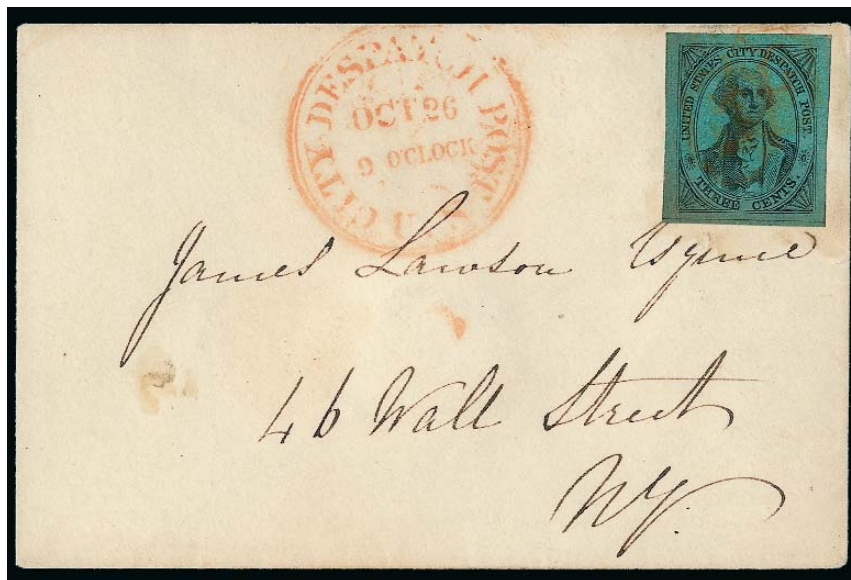 U.S. CITY DESPATCH POST
OCT 26
9 O'CLOCK
UNITED STATES CITY DESPATCH POST
THREE CENTS.
James Lawson
46 Wall Street
NY.